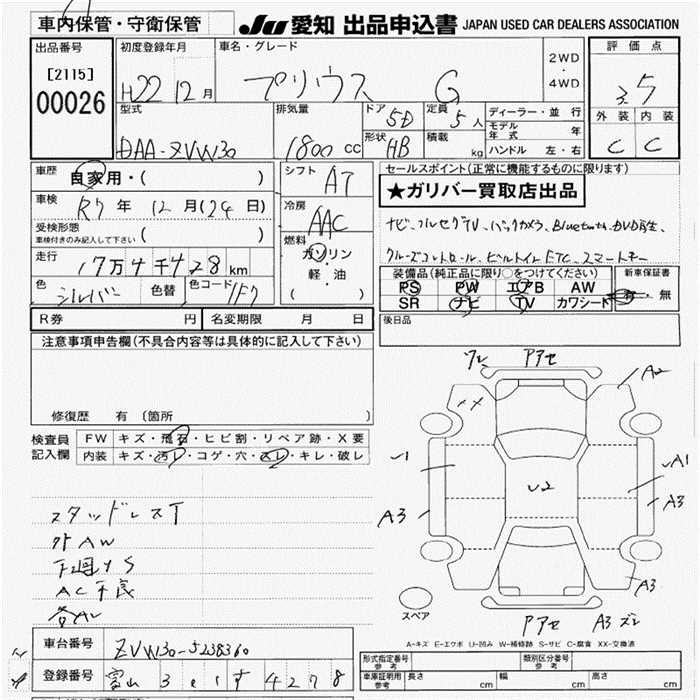 車内保管・守衛保管
JU 愛知 出品申込書 JAPAN USED CAR DEALERS ASSOCIATION
出品番号
[2115]
00026
初度登録年月
H22年12月
車名・グレード
プリウス G
2WD
・
4WD
評価点
3.5
外装 内装
C C
型式
DAA-ZVW30
排気量
1800 cc
ドア
5D
形状
HB
定員
5人
積載
kg
ディーラー・並行
モデル年式 年
ハンドル 左・右
車歴
自家用・( )
車検
R7年12月(24日)
受検形態
車検付きのみ記入して下さい ( )
走行
17万4千428km
色
シルバー
色替
色コード
1F7
シフト
AT
冷房
AAC
燃料
ガソリン
軽・油
( )
セールスポイント(正常に機能するものに限ります)
★ガリバー買取店出品
ナビ、フルセグTV、バックカメラ、Bluetooth、DVD再生、
クルーズコントロール、ビルトインETC、スマートキー
装備品(純正品に限り○をつけてください)
PS PW エアB AW
SR ナビ TV カワシート
新車保証書
有・無
後日品
R券 円
名変期限 月 日
注意事項申告欄(不具合内容等は具体的に記入して下さい)
修復歴 有〔箇所 〕
検査員
記入欄
FW キズ・飛石・ヒビ割・リペア跡・X要
内装 キズ・汚レ・コゲ・穴・スレ・キレ・破レ
スタッドレスT
外AW
下廻りS
AC不良
各AU
ワレ アアセ
A2
A1
A3
A3
U2
A3
アアセ A3 ズレ
スペア
A-キズ E-エクボ U-凹み W-補修跡 S-サビ C-腐食 XX-交換済
車台番号
ZVW30-5238360
登録番号
富山 3 4278
形式指定番号
参考
類別区分番号
参考
車庫証明用
参考
長さ cm
幅 cm
高さ cm